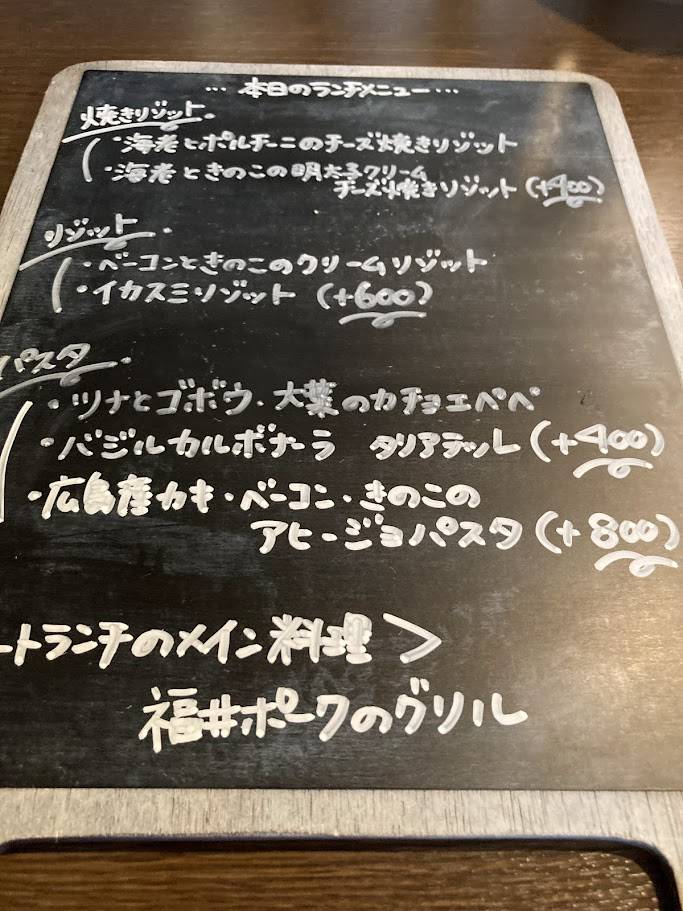 … 本日のランチメニュー …
焼きリゾット
・海老とポルチーニのチーズ焼きリゾット
・海老ときのこの明太子クリーム
チーズ焼きリゾット (+400)
リゾット
・ベーコンときのこのクリームリゾット
・イカスミリゾット (+600)
パスタ
・ツナとゴボウ・大葉のカチョエペペ
・バジルカルボナーラ タリアテッレ (+400)
・広島産カキ・ベーコン・きのこの
アヒージョパスタ (+800)
ートランチのメイン料理>
福井ポークのグリル